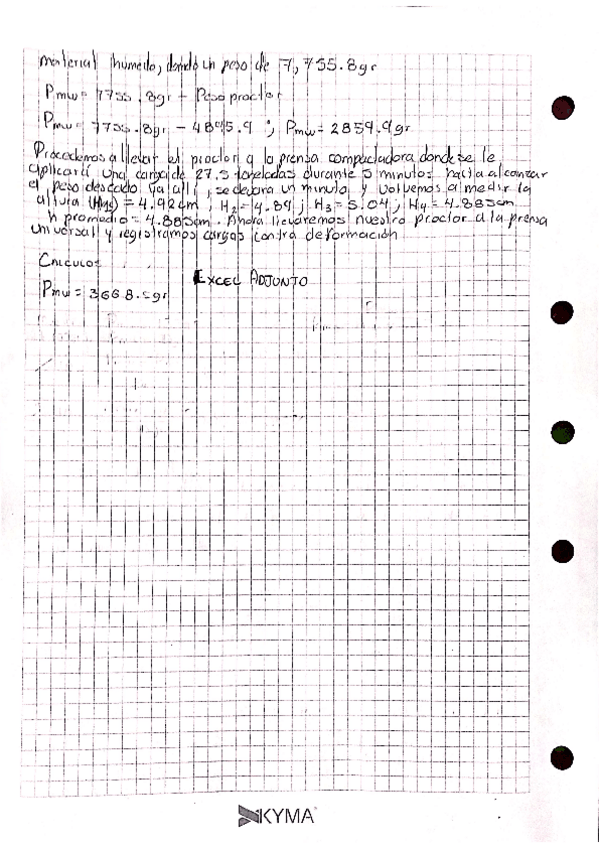 material humedo, dando un peso de 7,755.8gr
Pmw = 7755.8gr - Peso proctor
Pmw = 7755.8gr - 4895.9 ; Pmw = 2859.9gr
Procedemos a llevar el proctor a la prensa compactadora donde se le
aplicará una carga de 27.5 toneladas durante 5 minutos hasta alcanzar
el peso deseado ya allí, se dejara un minuto y volvemos a medir la
altura (H1) = 4.92cm ; H2 = 4.89 ; H3 = 5.04 ; H4 = 4.885cm
h promedio = 4.885cm. Ahora llevaremos nuestro proctor a la prensa
universal y registramos cargas contra deformación
Calculos
Excel Adjunto
Pmw = 3668.5gr
KYMA